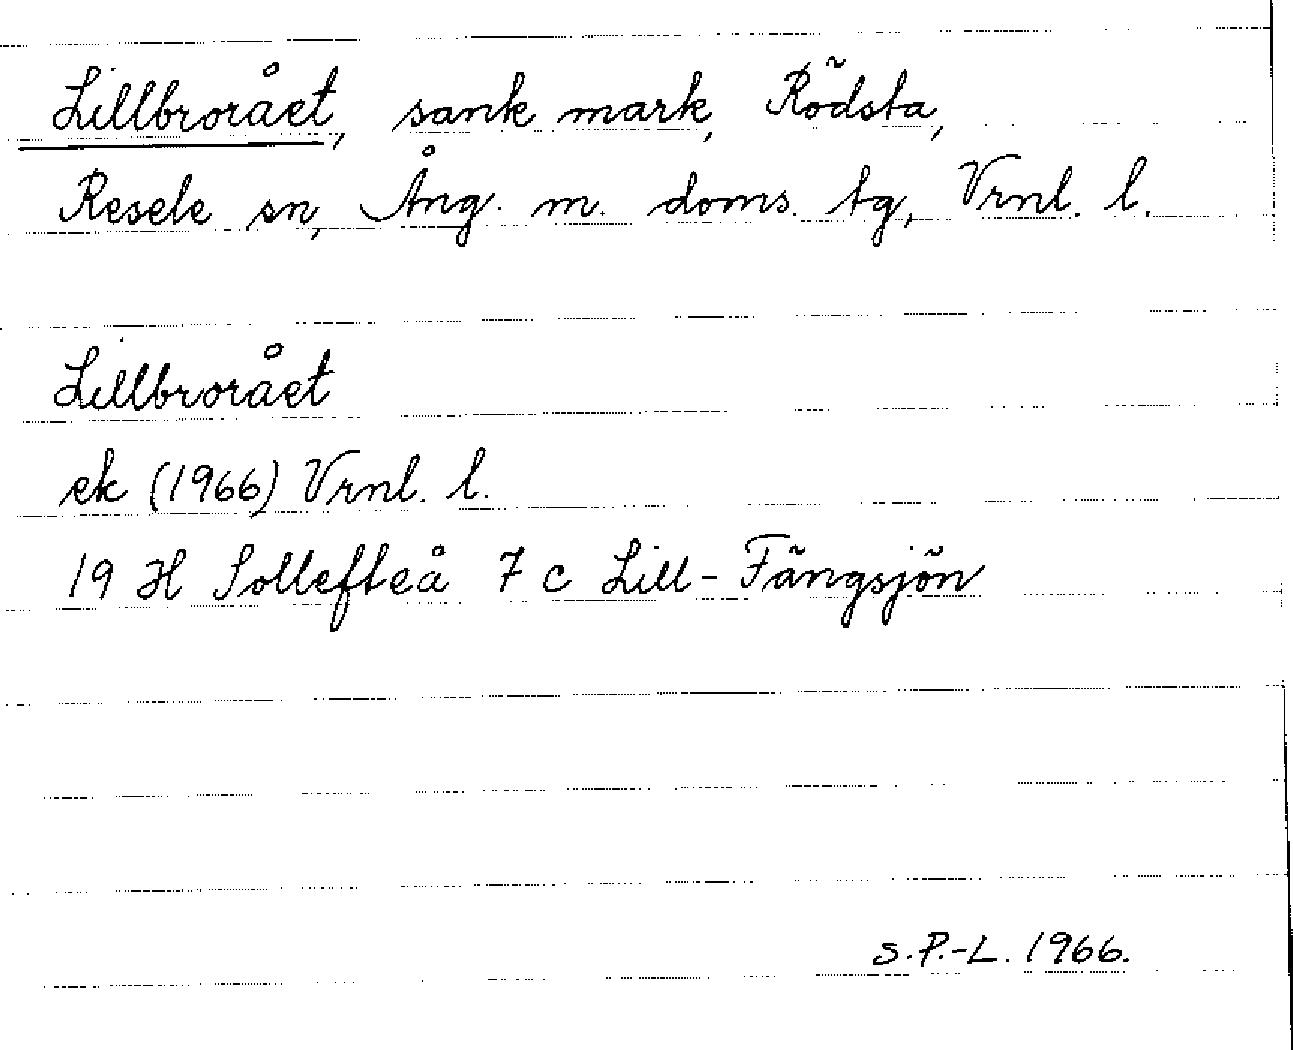 Lillbrorået, sank mark, Rödsta,
Resele sn, Ång. m. doms. tg, Vrnl. l.
Lillbrorået
ek (1966) Vrnl. l.
19 H Sollefteå 7 c Lill-Fängsjön
S.P.-L. 1966.